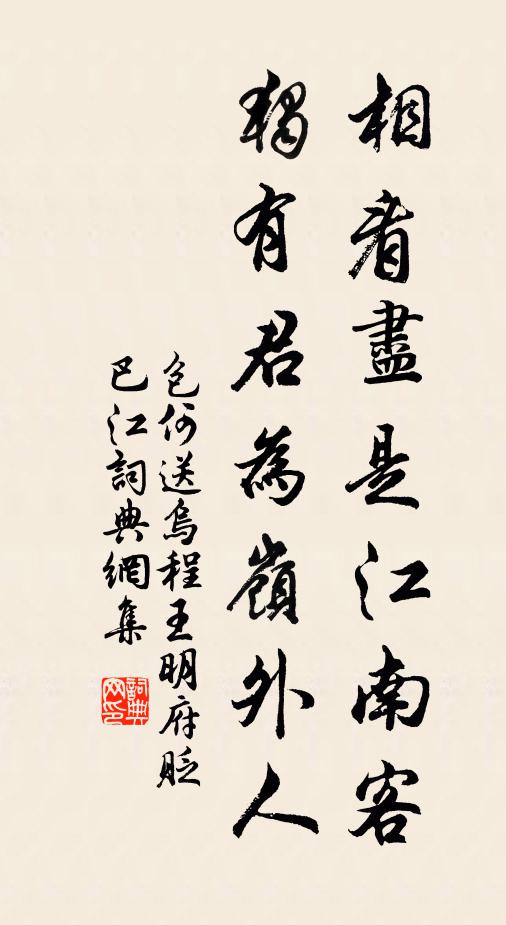 相看盡是江南客
獨有君為嶺外人
包何送烏程王明府貶
巴江詞典網集
詞典
网印